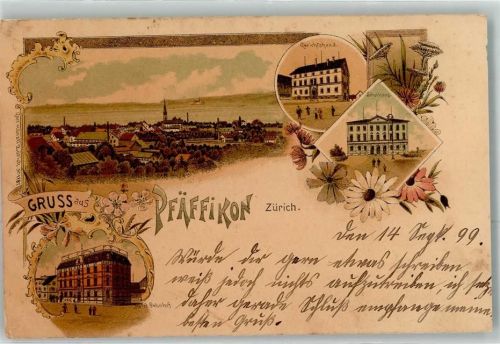 Gerichtshaus.
GRUSS aus
PFÄFFIKON Zürich.
Hotel Bahnhof.
den 14 Sept. 99.
Würde dir gern etwas schreiben
weiß jedoch nichts aufzutreiben, ich setz
daher gerade Schluß empfange meine
besten Gruß.